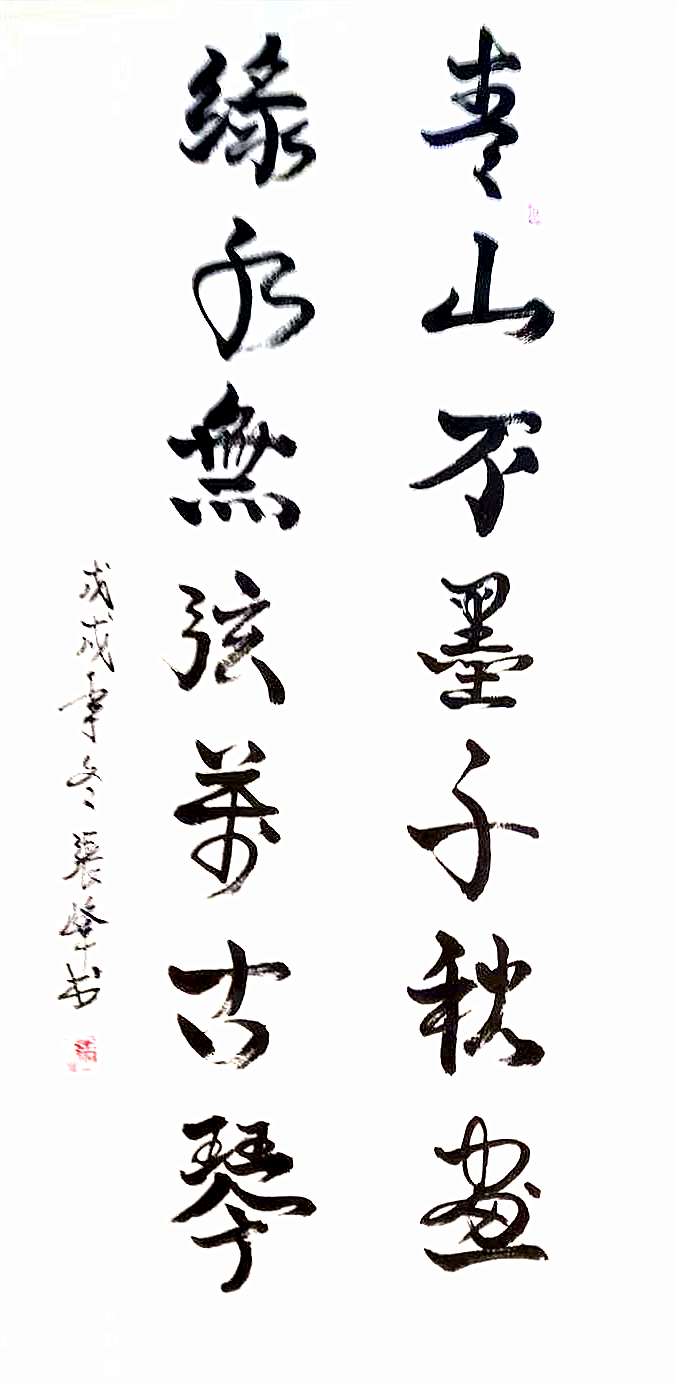 青山不墨千秋画
緑水無弦萬古琴
戊戌年冬張峰书